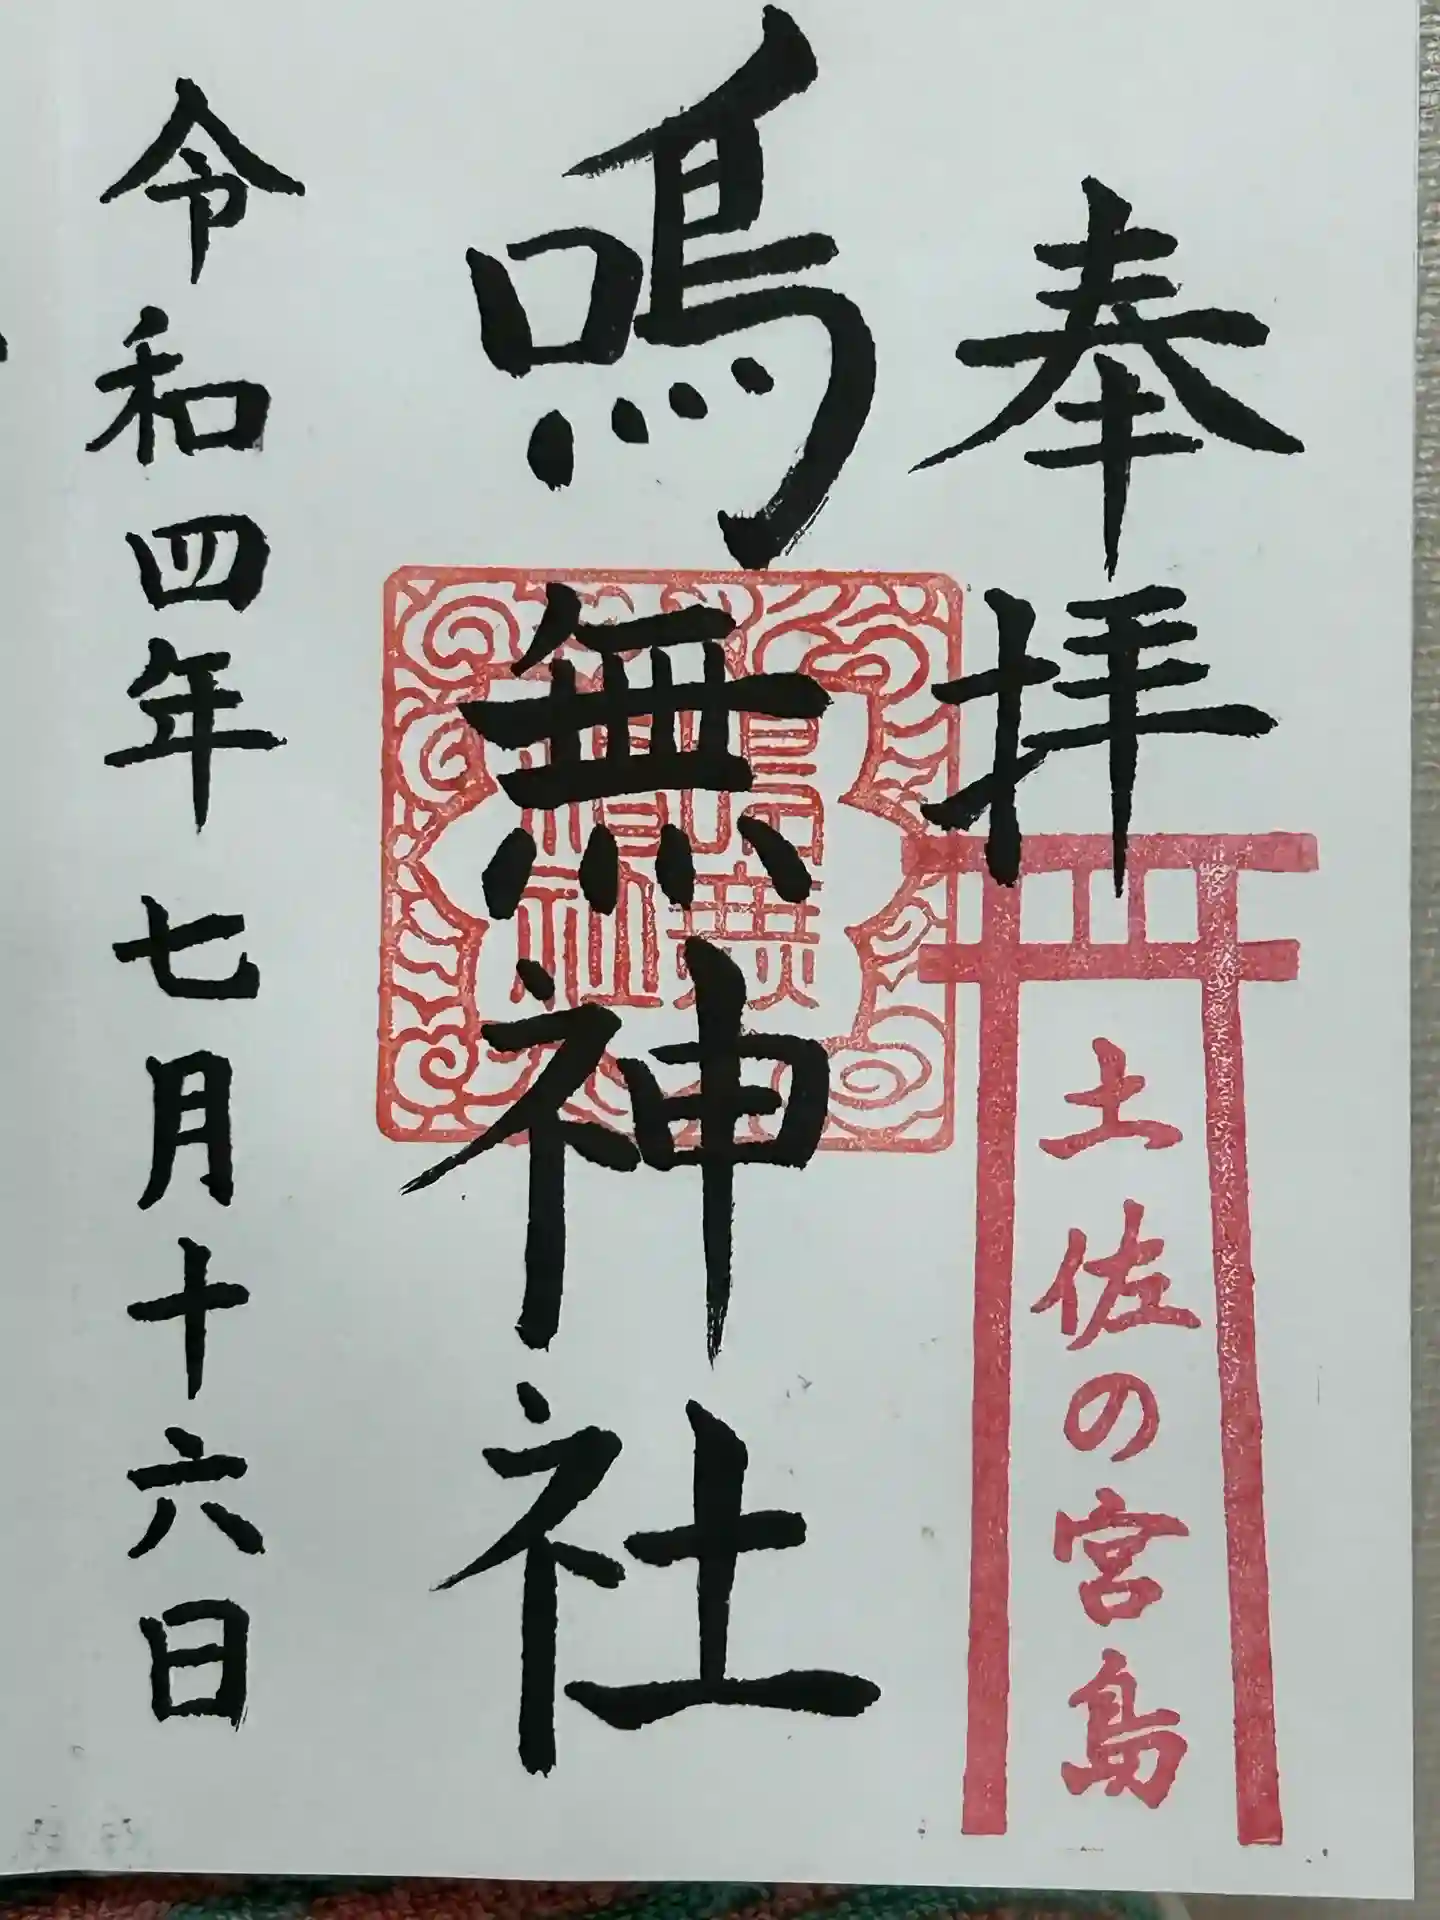 奉拝
土佐の宮島
鳴無神社
鳴無神社
令和四年七月十六日